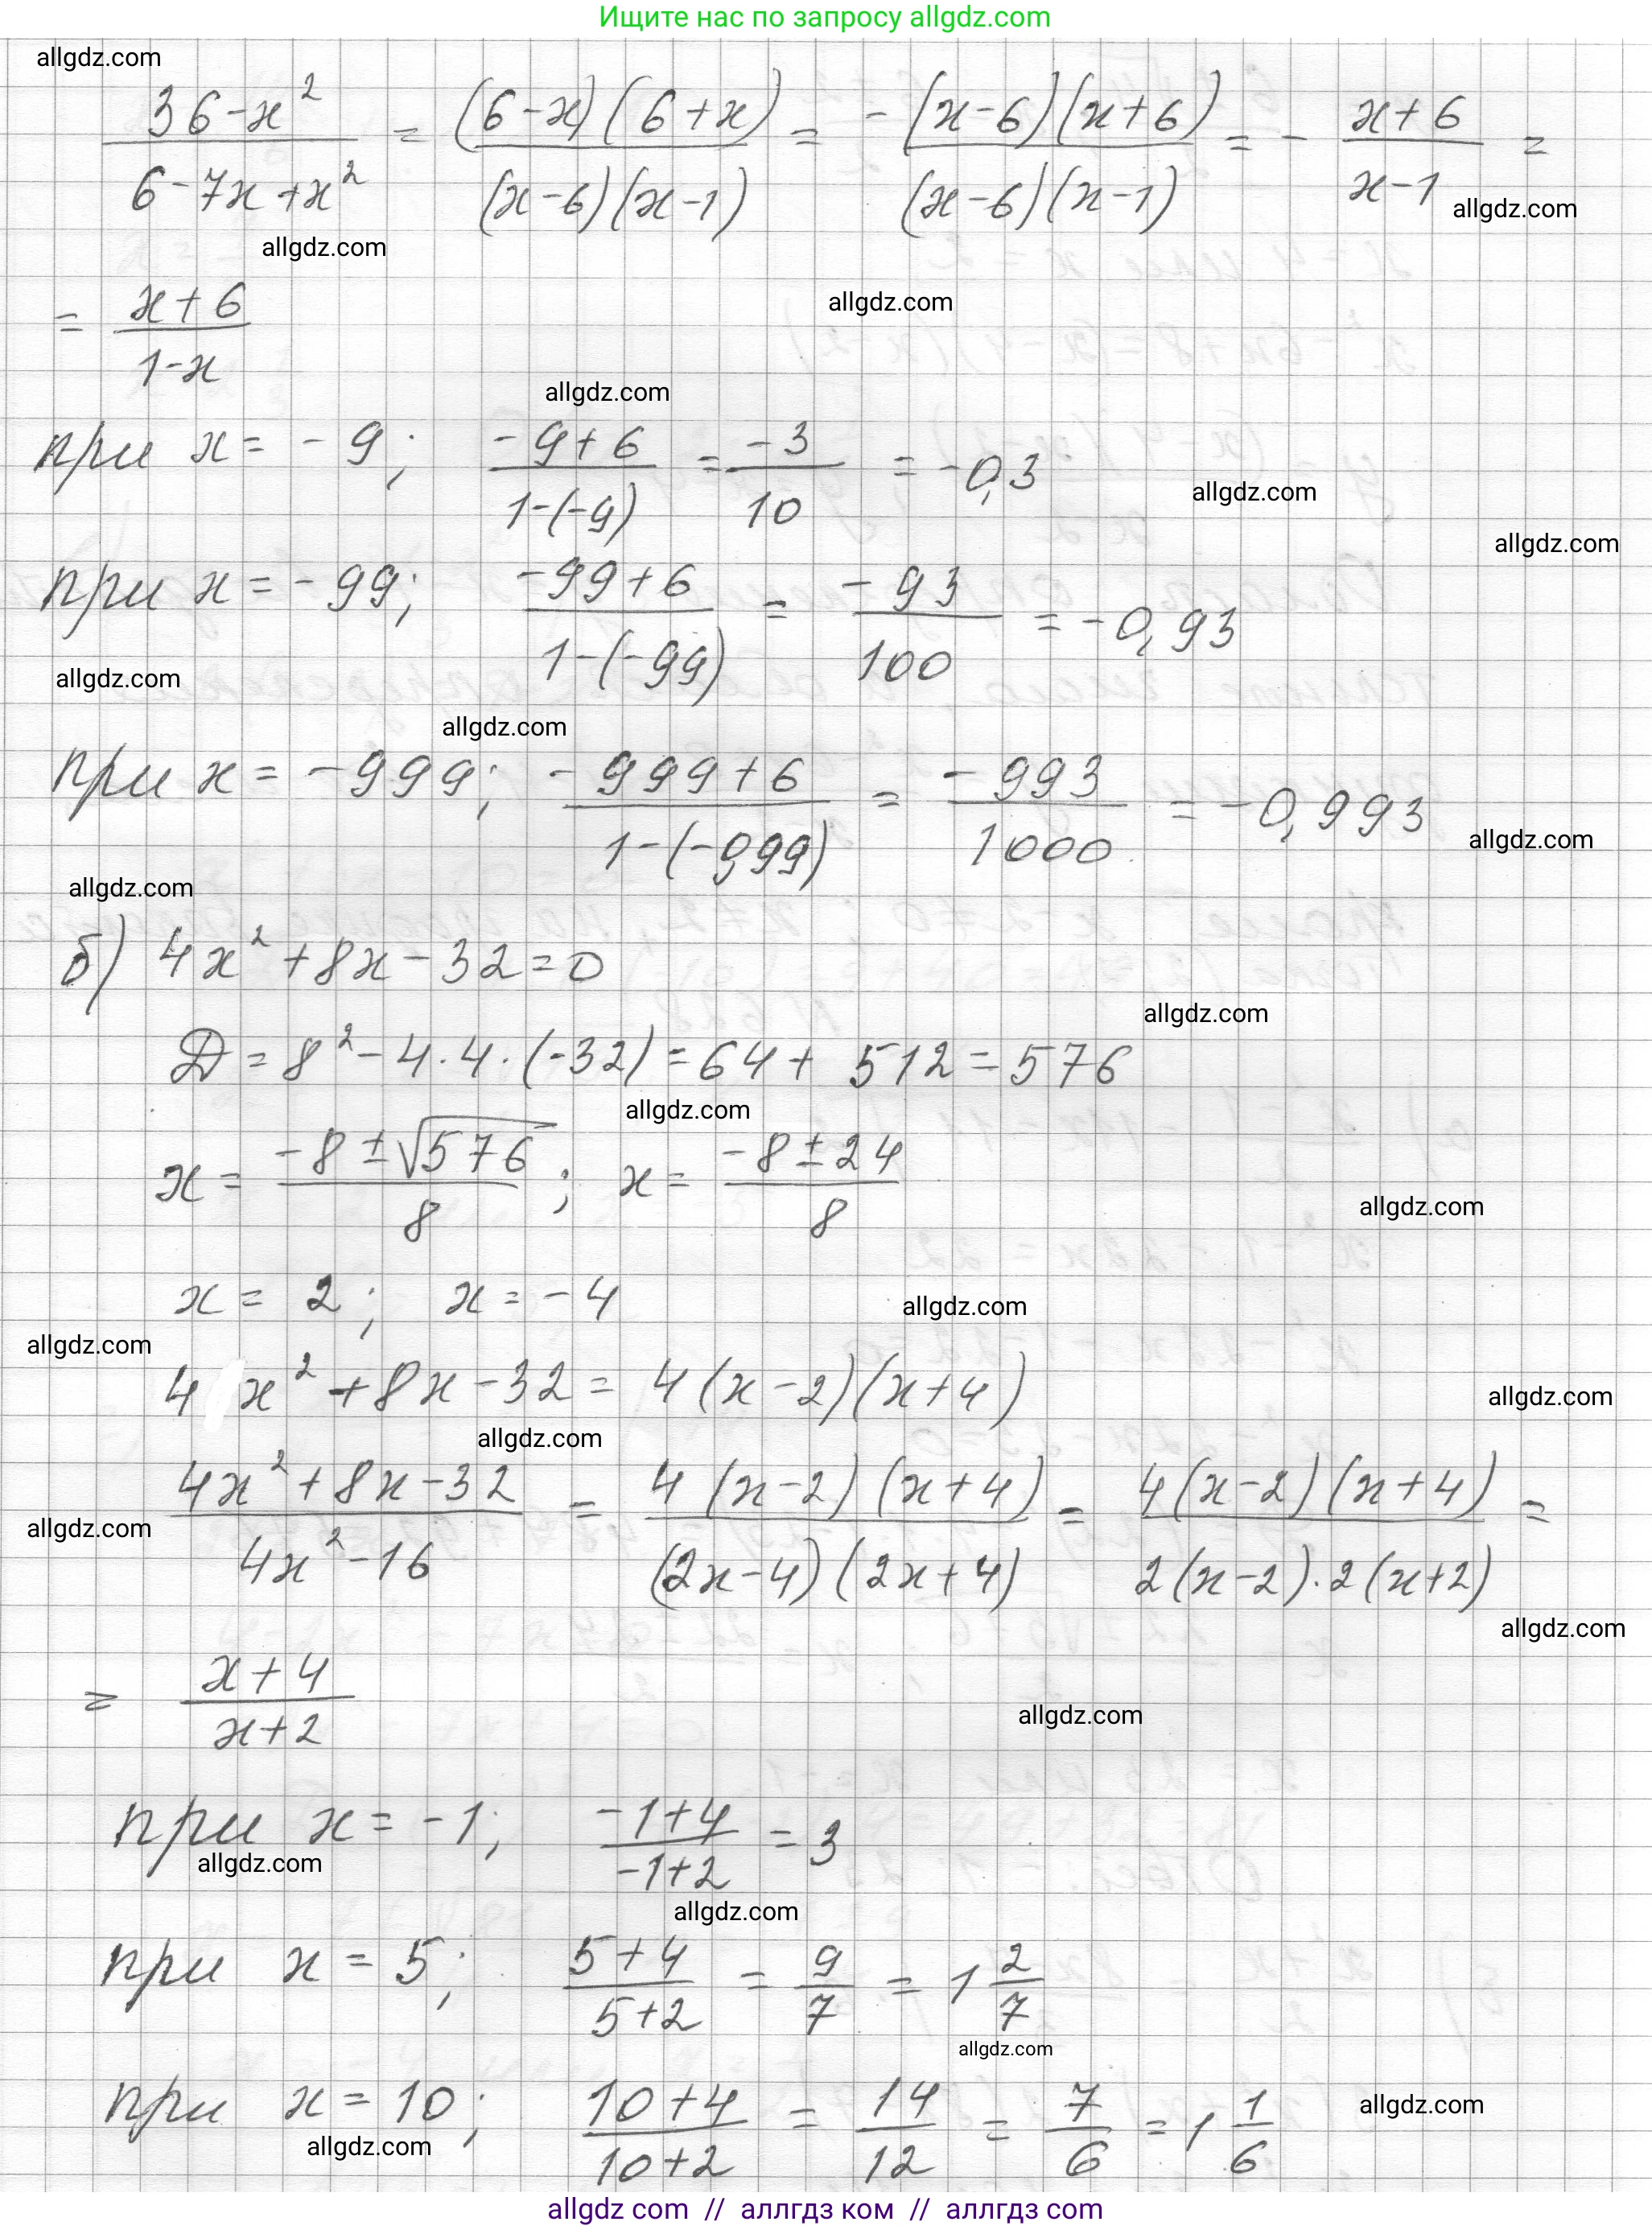 Ищите нас по запросу allgdz.com
allgdz.com
(36-x²)/(6-7x+x²) = ((6-x)(6+x))/((x-6)(x-1)) = (-(x-6)(x+6))/((x-6)(x-1)) = - (x+6)/(x-1) =
allgdz.com
allgdz.com
= (x+6)/(1-x)
allgdz.com
allgdz.com
при x = -9; (-9+6)/(1-(-9)) = (-3)/10 = -0,3
allgdz.com
allgdz.com
при x = -99; (-99+6)/(1-(-99)) = (-93)/100 = -0,93
allgdz.com
allgdz.com
при x = -999; (-999+6)/(1-(-0,99)) = (-993)/1000 = -0,993
allgdz.com
allgdz.com
б) 4x² + 8x - 32 = 0
allgdz.com
Д = 8² - 4·4·(-32) = 64 + 512 = 576
allgdz.com
x = (-8 ± √576)/8; x = (-8 ± 24)/8
allgdz.com
x = 2; x = -4
allgdz.com
allgdz.com
4 x² + 8x - 32 = 4(x-2)(x+4)
allgdz.com
allgdz.com
(4x² + 8x - 32)/(4x² - 16) = (4(x-2)(x+4))/((2x-4)(2x+4)) = (4(x-2)(x+4))/(2(x-2)·2(x+2)) =
allgdz.com
allgdz.com
= (x+4)/(x+2)
allgdz.com
при x = -1; (-1+4)/(-1+2) = 3
allgdz.com
allgdz.com
при x = 5; (5+4)/(5+2) = 9/7 = 1 2/7
allgdz.com
при x = 10; (10+4)/(10+2) = 14/12 = 7/6 = 1 1/6
allgdz.com
allgdz.com
allgdz com // аллгдз ком // аллгдз com